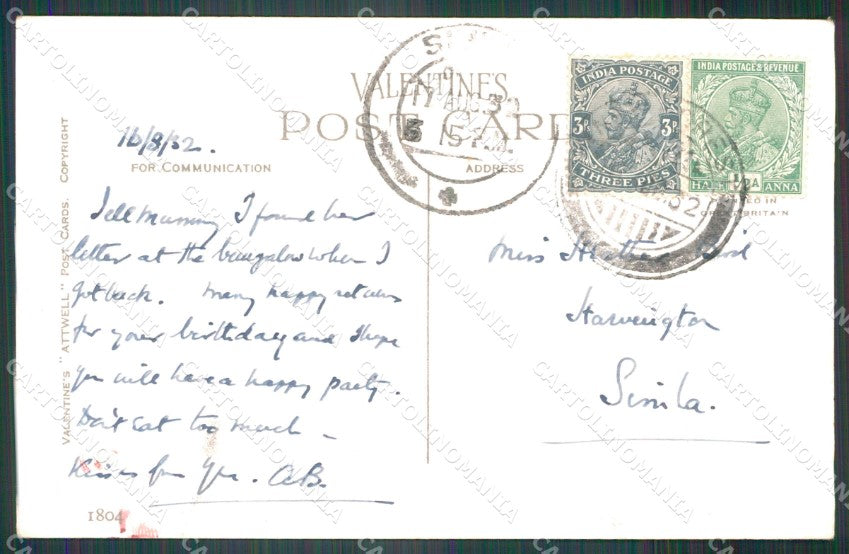 VALENTINE'S
POST CARD
16/8/32.
FOR COMMUNICATION
ADDRESS
Tell Mummy I found her
letter at the bungalow when I
got back. Many happy returns
for your birthday and I hope
you will have a happy party.
Don't eat too much –
Kisses for you. AB.
1804
VALENTINE'S "ATTWELL" POST CARDS. COPYRIGHT
17 AUG 32
5 15 P.M.
INDIA POSTAGE
3P 3P
THREE PIES
INDIA POSTAGE & REVENUE
HALF ½A ANNA
PRINTED IN
GREAT BRITAIN
32
Miss Heather
Harvington
Simla.
CARTOLINOMANIA